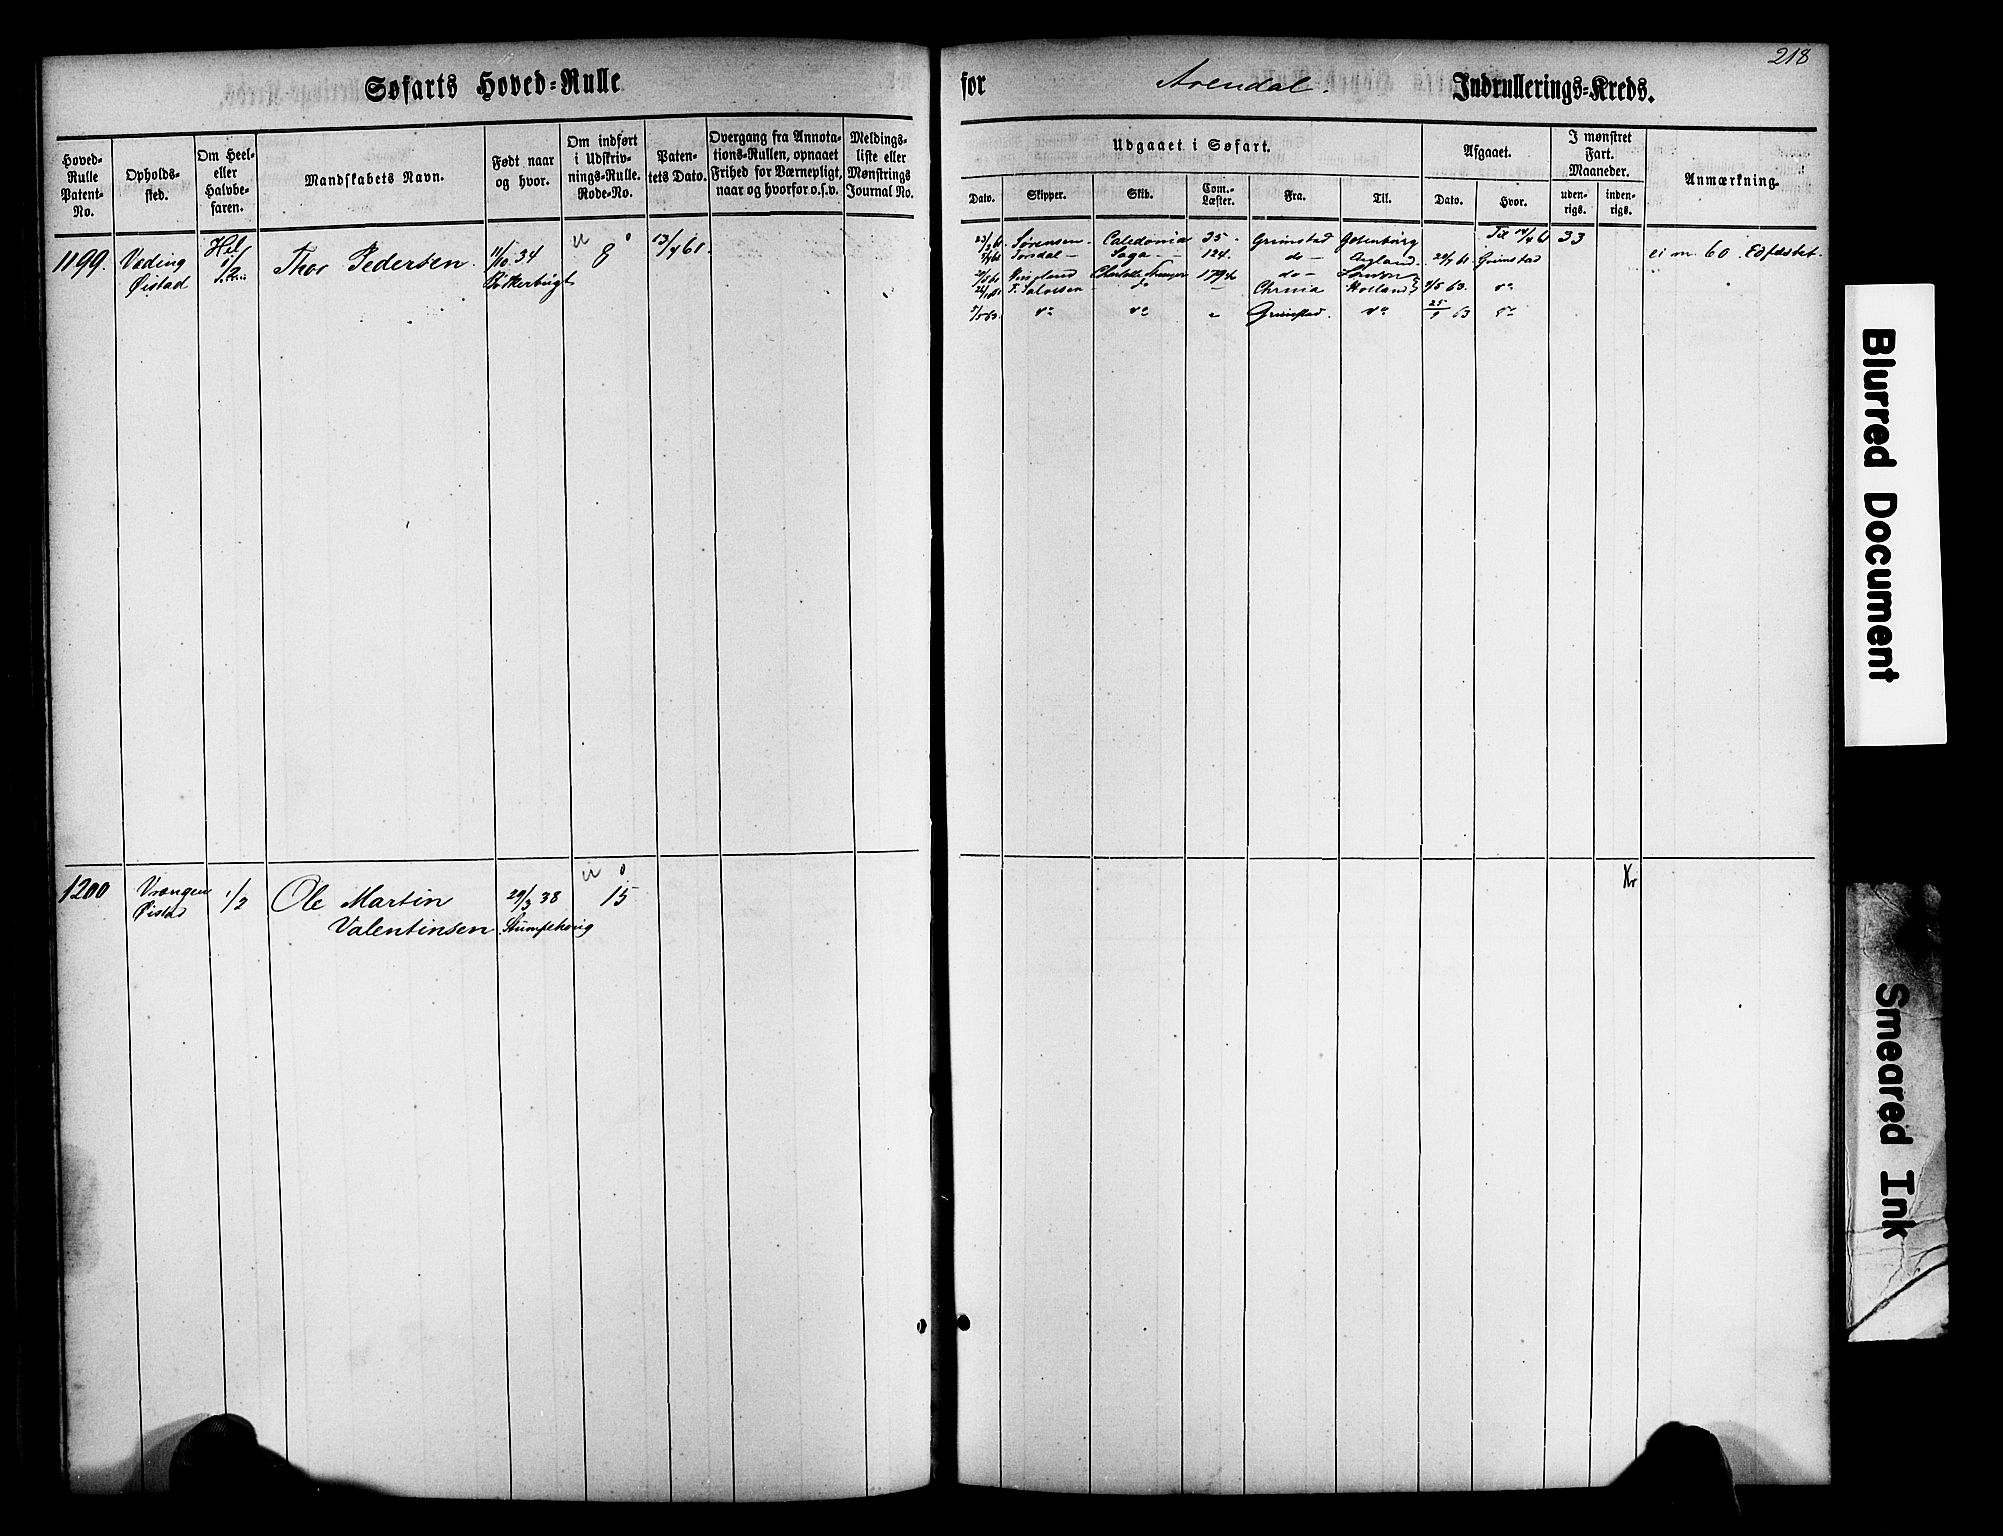 218
Søfarts Hoved=Rulle
for Arendal. Indrullerings=Kreds.
Hoved-Rulle Patent-No.
Opholds-sted.
Om Heel- eller Halvbe-faren.
Mandskabets Navn.
Født naar og hvor.
Om indført i Udskriv-nings-Rulle. Rode-No.
Paten-tets Dato.
Overgang fra Annota-tions-Rullen, opnaaet Frihed for Værnepligt, naar og hvorfor o.s.v.
Meldings-liste eller Mønstrings Journal No.
Udgaaet i Søfart.
Dato. Skipper. Skib. Com.-Læster. Fra. Til.
Afgaaet.
Dato. Hvor.
I mønstret Fart. Maaneder.
uden-rigs. inden-rigs.
Anmærkning.
1199. Væding Øistad
1/2
Thor Pedersen.
11/10. 34
8
13/4 61.
Sørensen - Caledonia 35 - Grimstad Gotenburg
33
Saga - 124. do - England. Grimstad
ei m. 60. Edfæstet.
do - London
T. Salvesen - do Chrnia Holland 63. do
do do Grimstad. do 25/9 63 do
1200
Øistad
1/2
Ole Martin
Valentinsen
29/3 38
15
Kr
Blurred Document
Smeared Ink